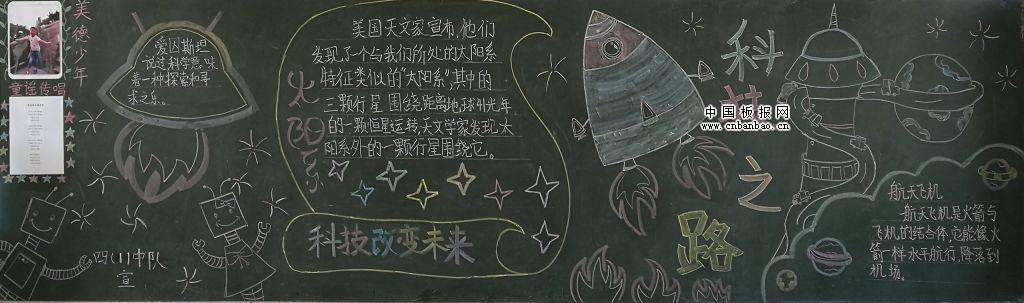 美德少年
童谣传唱
爱因斯坦
说过科学意味
着一种探索和寻
求之乐。
四(1)中队
宣
太阳系
美国天文家宣布,他们
发现了个与我们所处的太阳系
特征类似的"太阳系",其中的
三颗行星围绕距离地球41光年
的一颗恒星运转,天文学家发现太
阳系外的一颗行星围绕它。
科技改变未来
科技之路
中国板报网
www.cnbanbao.cn
航天飞机
航天飞机是火箭与
飞机的结合体,它能像火
箭一样水平航行,降落到
机场。